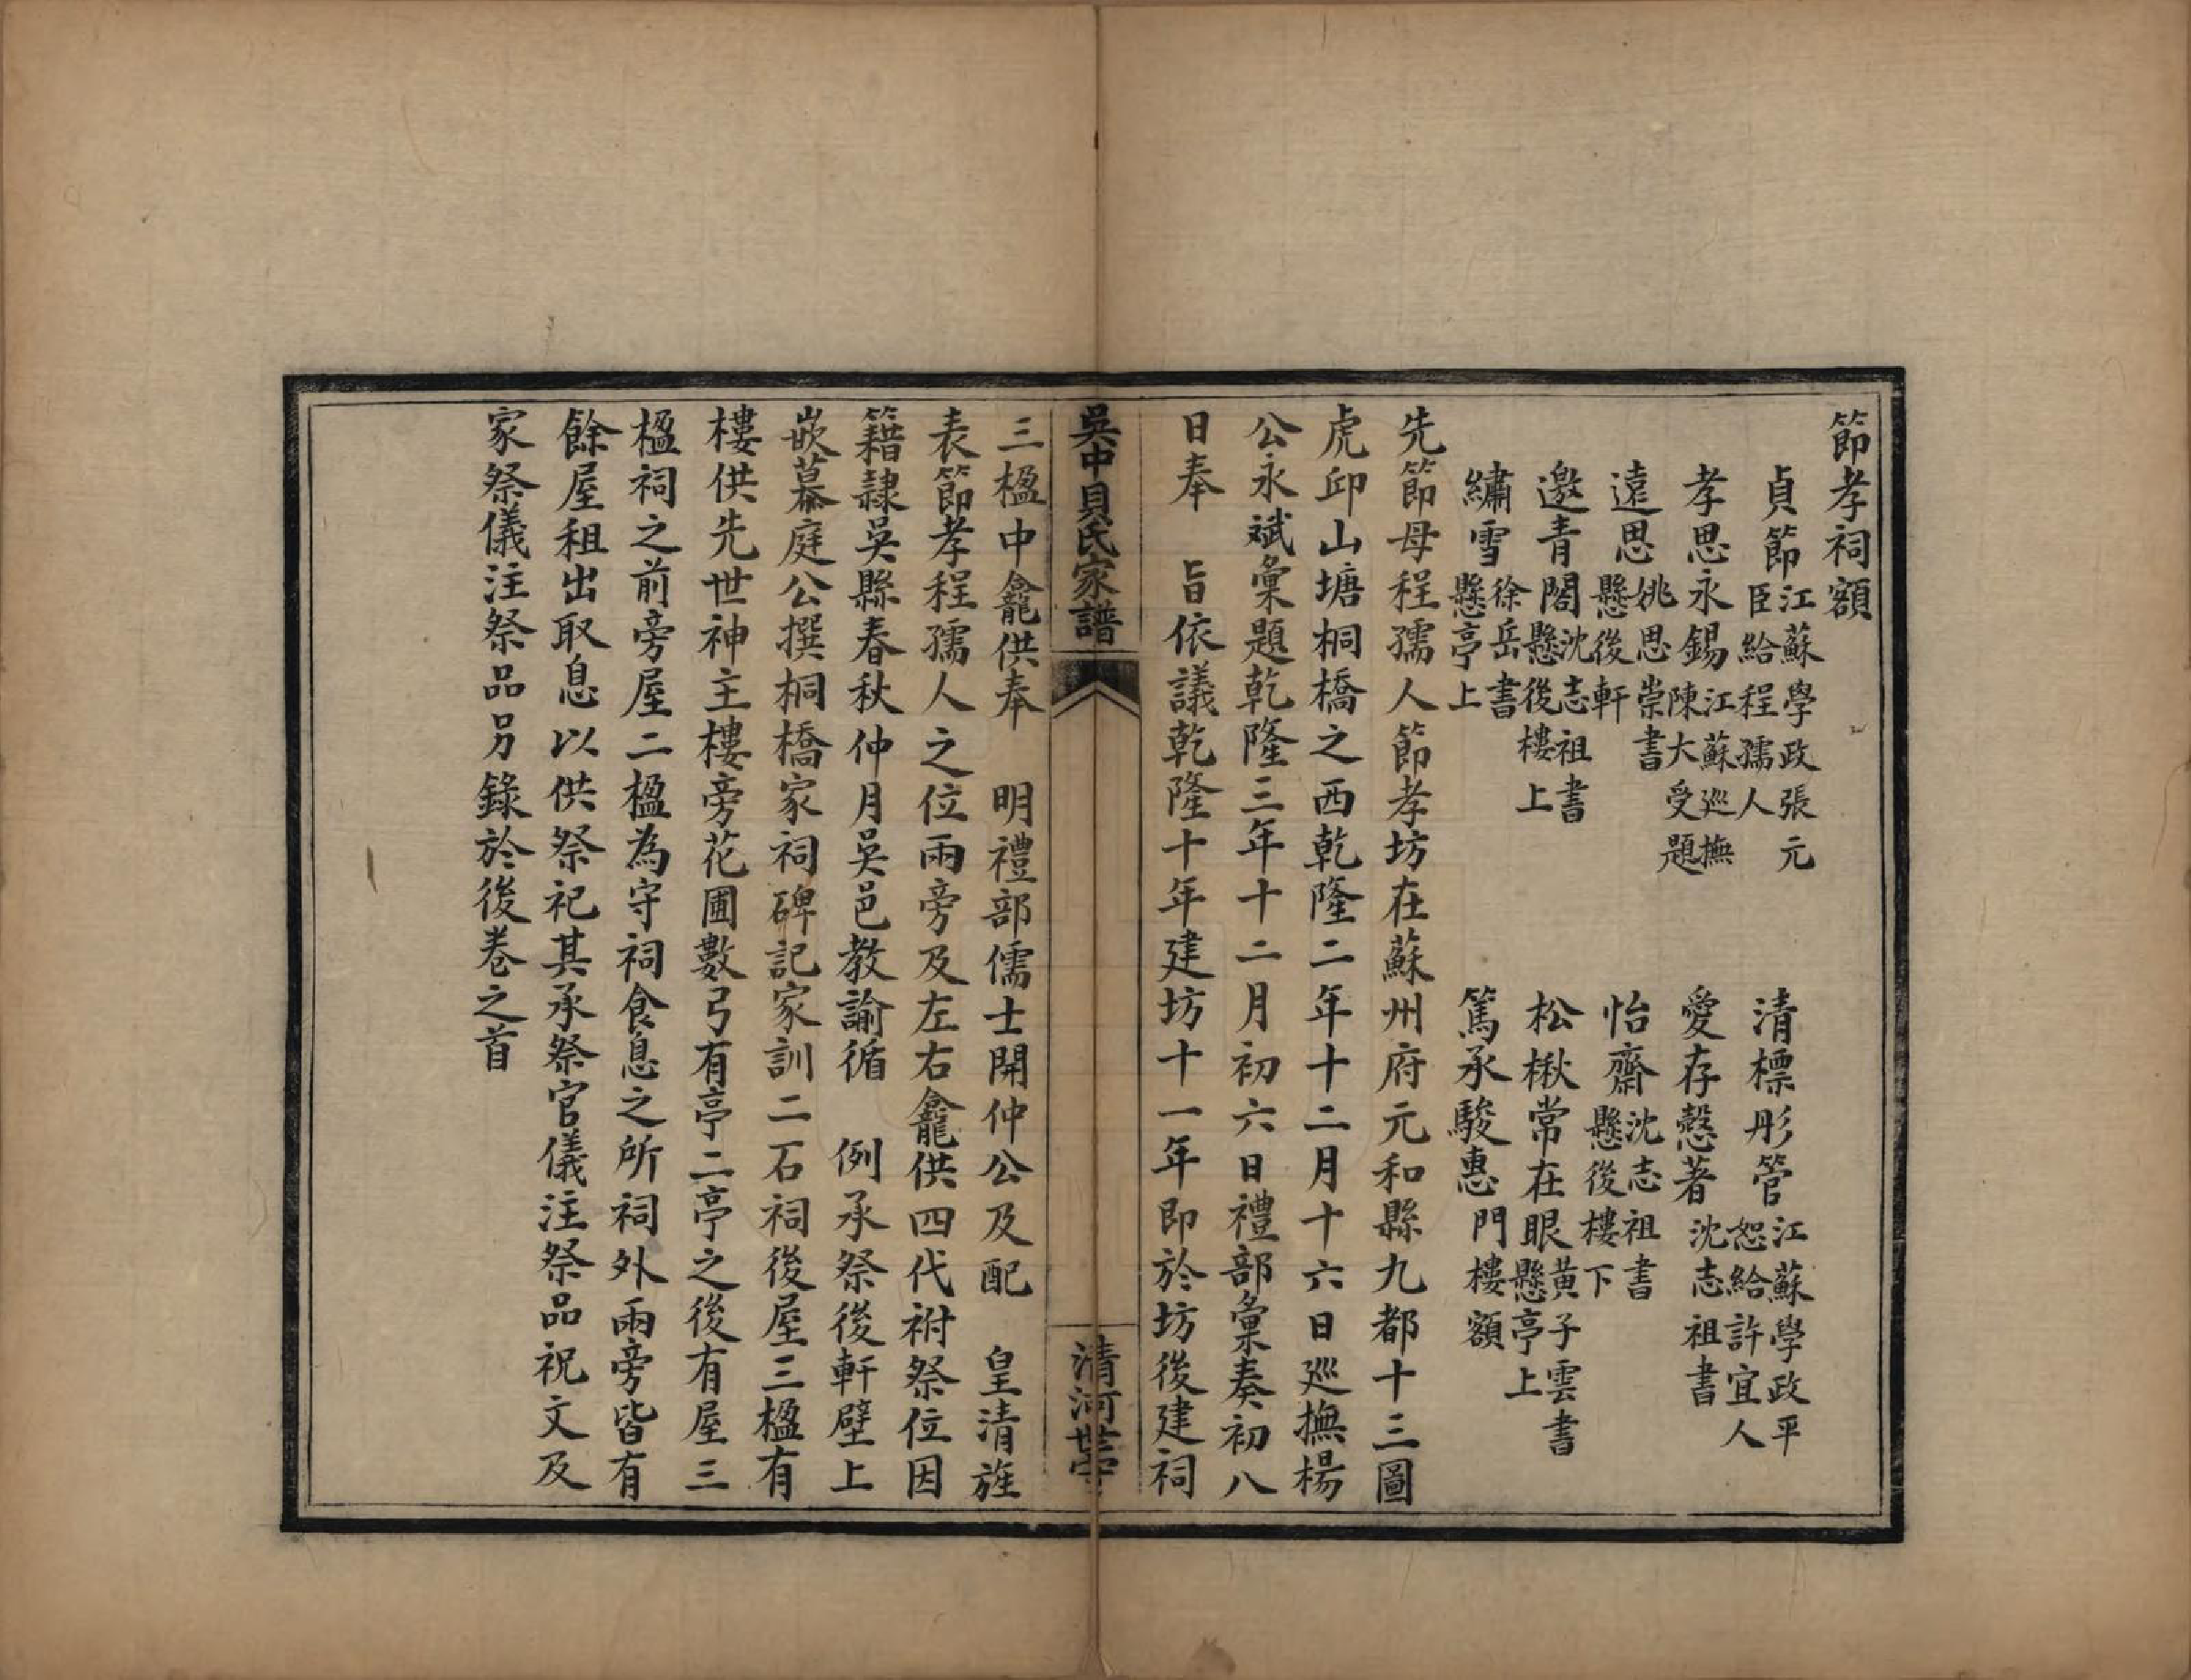 節孝祠額
貞節 江蘇學政張元臣給程孺人
清標彤管 江蘇學政平恕給許宜人
孝思永錫 江蘇巡撫陳大受題
愛存慤著 沈志祖書
遠思 姚思崇書懸後軒
怡齋 沈志祖書懸後樓下
邀青閣 沈志祖書懸後樓上
松楸常在眼 黃子雲書懸亭上
繡雪 徐岳書懸亭上
篤承駿惠 門樓額
先節母程孺人節孝坊在蘇州府元和縣九都十三圖
虎邱山塘桐橋之西乾隆二年十二月十六日巡撫楊
公永斌彙題乾隆三年十二月初六日禮部彙奏初八
日奉 旨依議乾隆十年建坊十一年即於坊後建祠
吳中貝氏家譜
清河世宁
三楹中龕供奉 明禮部儒士開仲公及配 皇清旌
表節孝程孺人之位兩旁及左右龕供四代祔祭位因
籍隸吳縣春秋仲月吳邑教諭循 例承祭後軒壁上
嵌慕庭公撰桐橋家祠碑記家訓二石祠後屋三楹有
樓供先世神主樓旁花圃數弓有亭二亭之後有屋三
楹祠之前旁屋二楹為守祠食息之所祠外兩旁皆有
餘屋租出取息以供祭祀其承祭官儀注祭品祝文及
家祭儀注祭品另錄於後卷之首